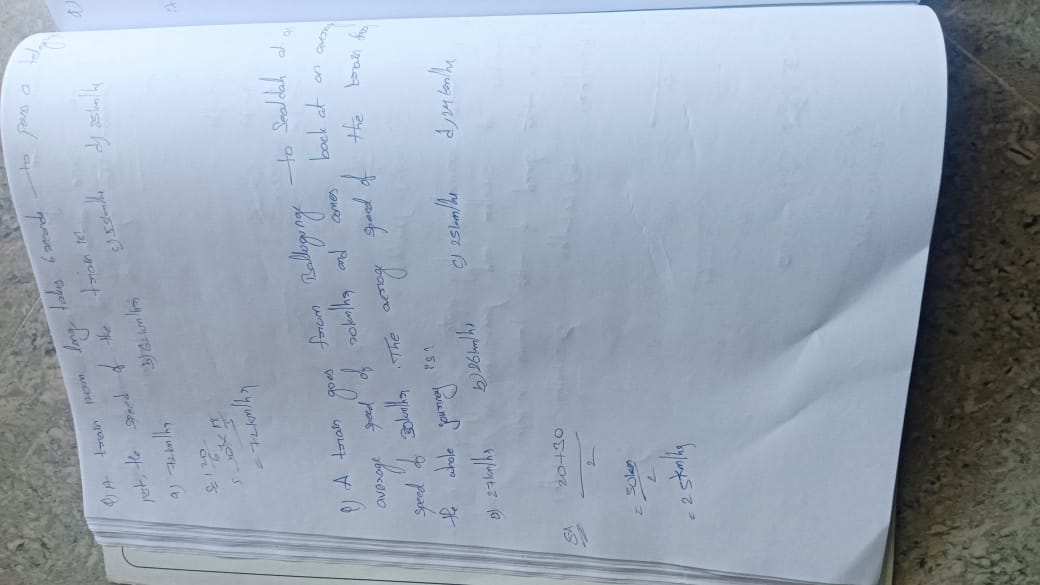 Q) A train 120m long takes 6 seconds to pass a
post, the speed of the train is?
a) 72km/hr b) km/hr c) 55km/hr d) km/hr
S = 120/6
= 72km/hr
Q) A train goes from Ballygunge to Sealdah at a
average speed of 20km/hr and comes back at an
speed of 30km/hr. The average speed of the train for
the whole journey is?
a) 27km/hr b) 26km/hr c) 25km/hr d) 24km/hr
20+30/2
= 50km/2
= 25km/hr